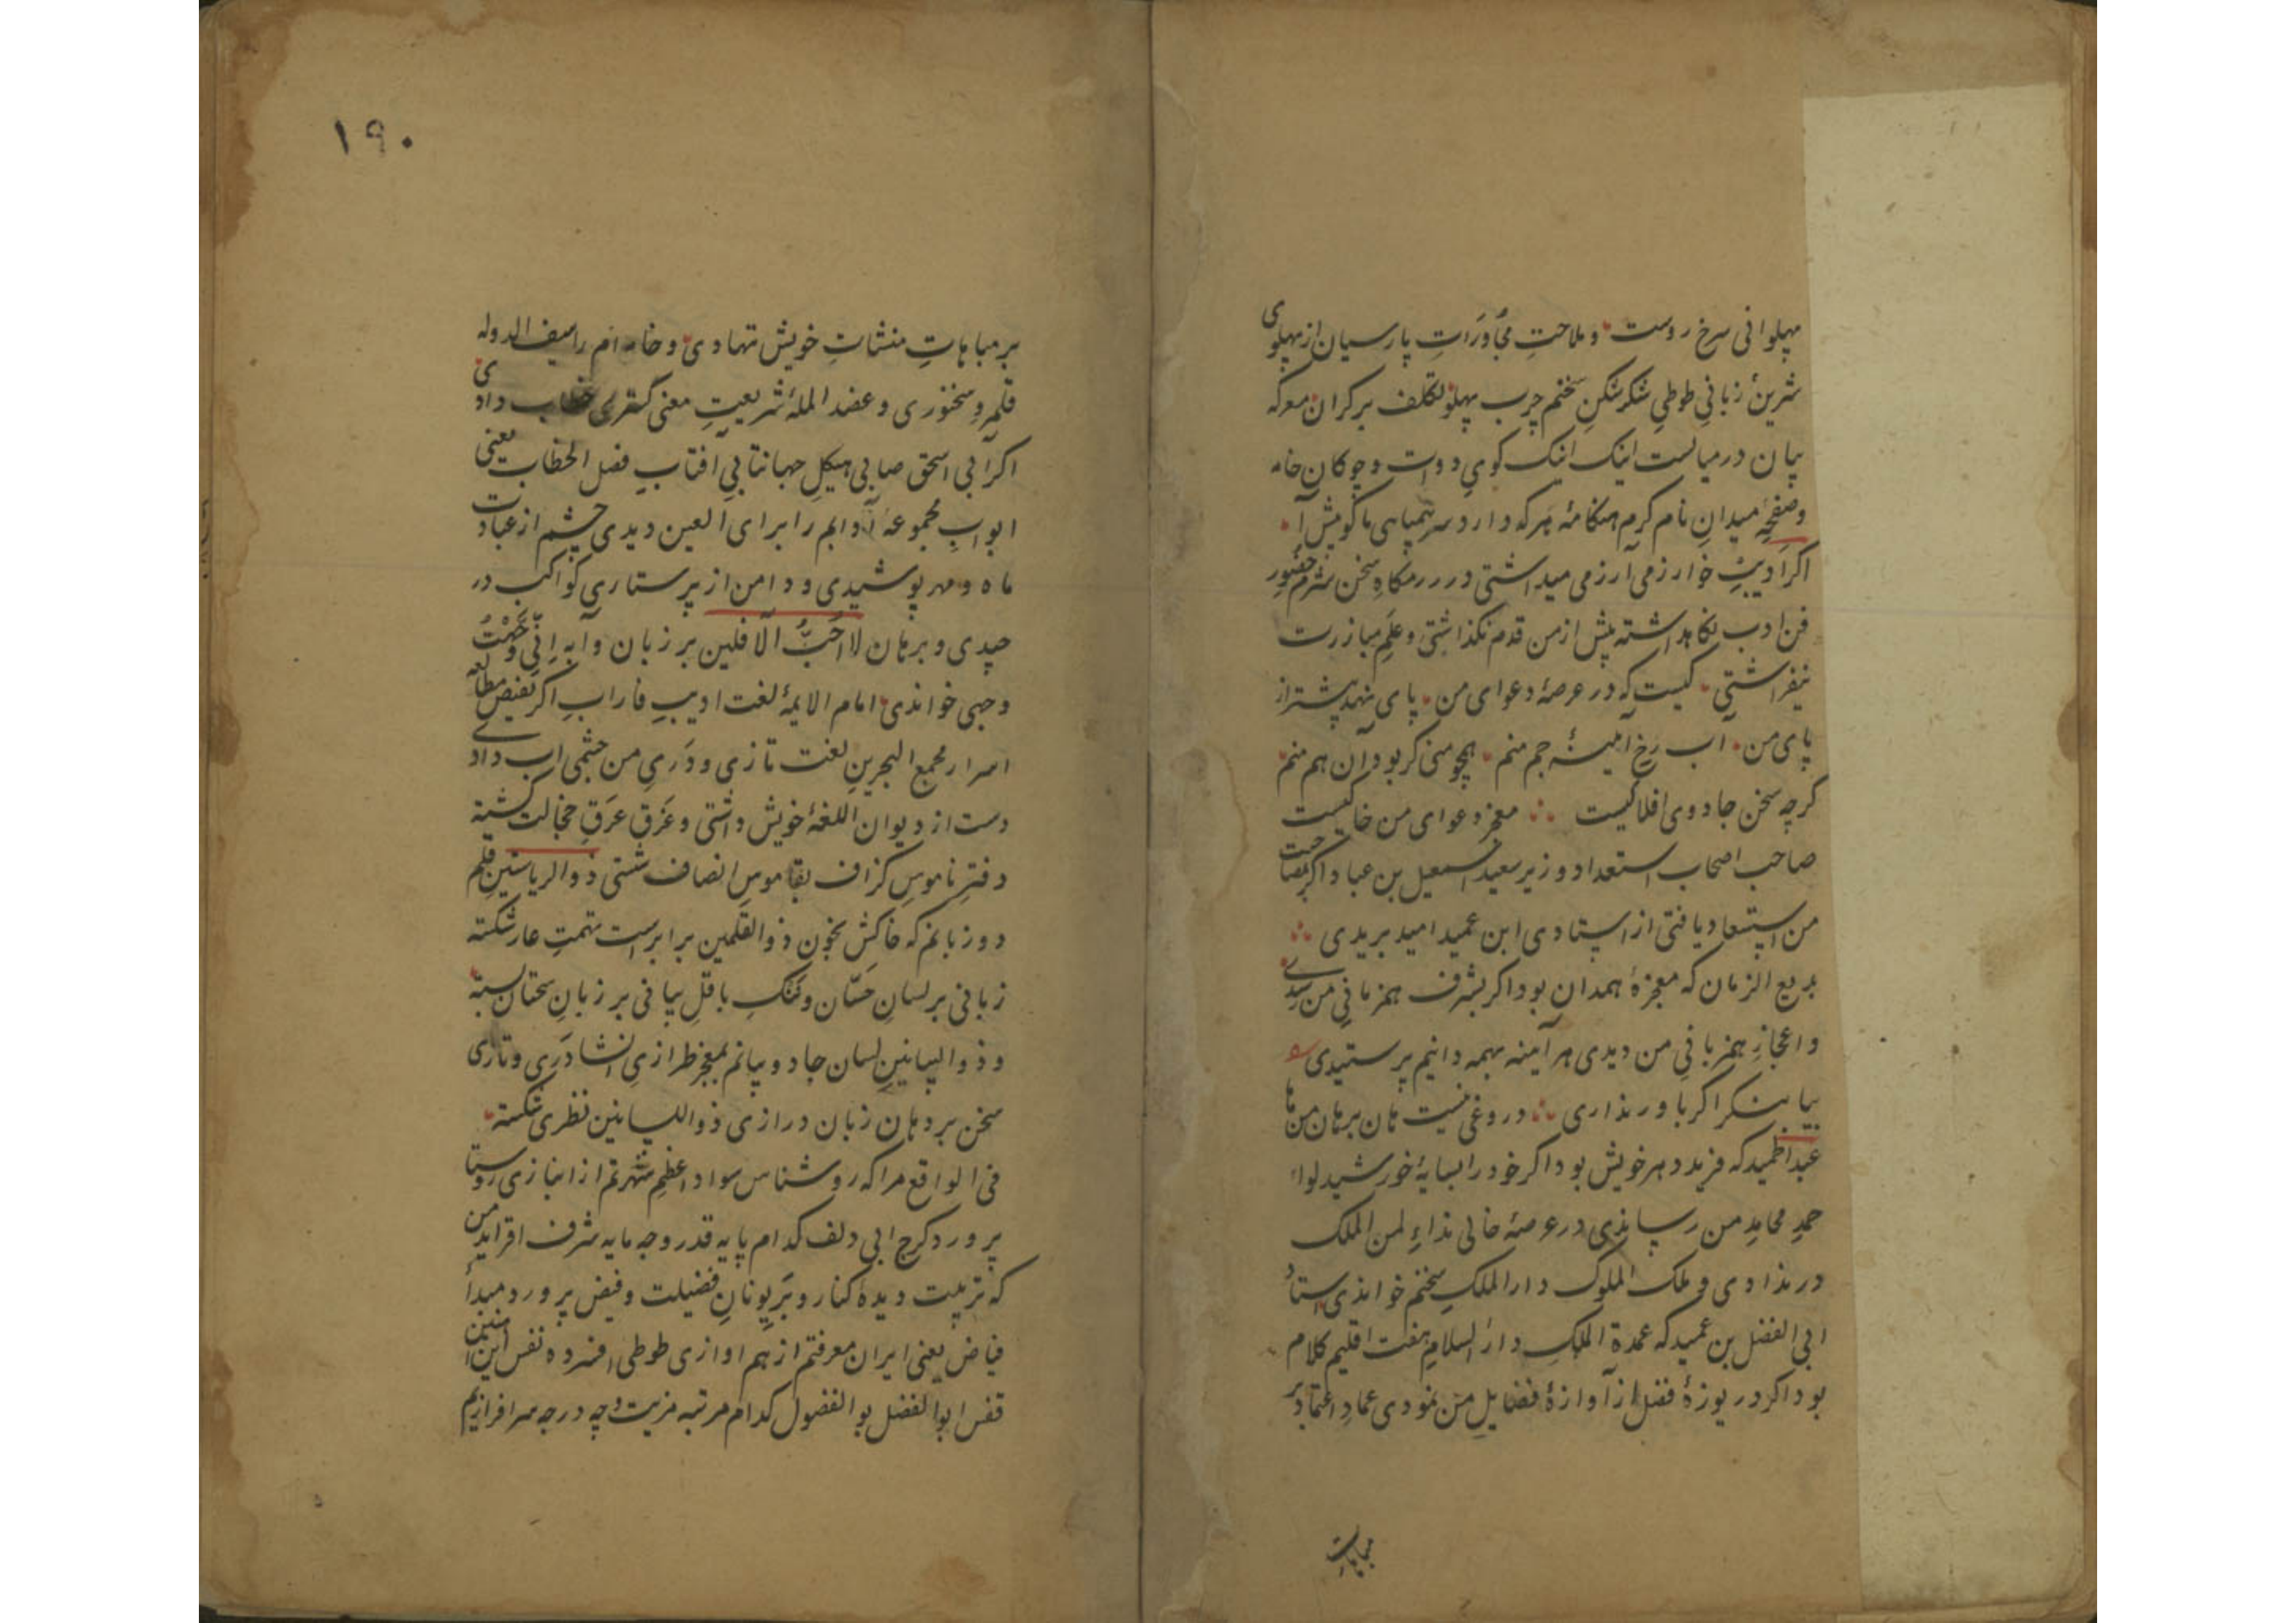 پهلوانی سرخ روست و ملاحت محاورات پارسیان از پهلوی
شرین زبانی طوطی شکرشکن سخنم چرب پهلو تکلف برکران معرکه
بیان در میانست اینک اینک کوی دوات و چوکان خامه
و صفحه میدان نام کرم هنکامه هرکه دارد سر همپاهی ما کومیش آ
اکر ادیب خوارزمی آرزمی میداشتی در رزمکاه سخن شرم حضور
فن ادب نکاهداشته پیش از من قدم نکذاشتی و علم مبارزت
نیفراشتی کیست که در عرصهٔ دعوای من پای نهد پیشتر از
پای من آب رخ آینهٔ جم منم همچو منی کر بود آن هم منم
کرچه سخن جادوی افلاکیست معجز دعوای من خاکیست
صاحب اصحاب استعداد وزیر سعید اسمعیل بن عباد اکر بمصاحبت
من استسعاد یافتی از استادی ابن عمید امید بریدی
بدیع الزمان که معجزهٔ همدان بود اکر بشرف همزمانی من رسیدی
و اعجاز همزبانی من دیدی هر آینه بهمه دانیم پرستیدی
بیا بنکر اکر باور نداری دروغی نیست هان برهان من ها
عبدالحمید که فرید دهر خویش بود اکر خود را بسایهٔ خورشید لواء
حمد محامد من رسانیدی در عرصهٔ خالی نداء لمن الملک
در ندادی و ملک الملوک دار الملک سخنم خواندی استاد
ابی الفضل بن عمید که عمدة الملک دار السلام هفت اقلیم کلام
بود اکر دریوزهٔ فضل از آوازهٔ فضایل من نمودی عماد اعتماد بر
مباهات
۱۹۰
بر مباهات منشات خویش ننهادی و خامه ام را سیف الدوله
قلمرو سخنوری و عضد الملهٔ شریعت معنی کستری خطاب دادی
اکر ابی اسحق صابی هیکل جهانتابی آفتاب فصل الخطاب یعنی
ابواب مجموعهٔ آدابم را برای العین دیدی چشم از عبادت
ماه و مهر پوشیدی و دامن از پرستاری کواکب در
چیدی و برهان لا احب الآفلین بر زبان و آیه انی وجهت
وجهی خواندی امام الایمهٔ لغت ادیب فاراب اکر بفیض مطالعه
اسرار مجمع البحرین لغت تازی و دری من چشمی اب دادی
دست از دیوان اللغهٔ خویش داشتی و غرق عرق خجالت کشته
دفتر ناموس کزاف بقاموس انصاف شستی ذو الریاستین قلم
دو زبانم که خاکش بخون ذو القلمین برابرست تهمت عار شکسته
زبانی بر لسان حسان و ننک باقل بیانی بر زبان سحبان بسته
و ذو البیانین لسان جادو بیانم بمعجز طرازی انشا دری و تازی
سخن بر دهان زبان درازی ذو اللسانین نظری شکسته
فی الواقع مرا که روشناس سواد اعظم شهرتم از انبازی روستا
پرورد کرج ابی دلف کدام پایه قدر و چه مایه شرف افزاید من
که تربیت دیدهٔ کنار و بر یونان فضیلت و فیض پرورد مبدأ
فیاض یعنی ایران معرفتم از هم اوازی طوطی افسرده نفس آهنین
قفس ابو الفضل بو الفضول کدام مرتبه مزیت و چه درجه سرافرازیم